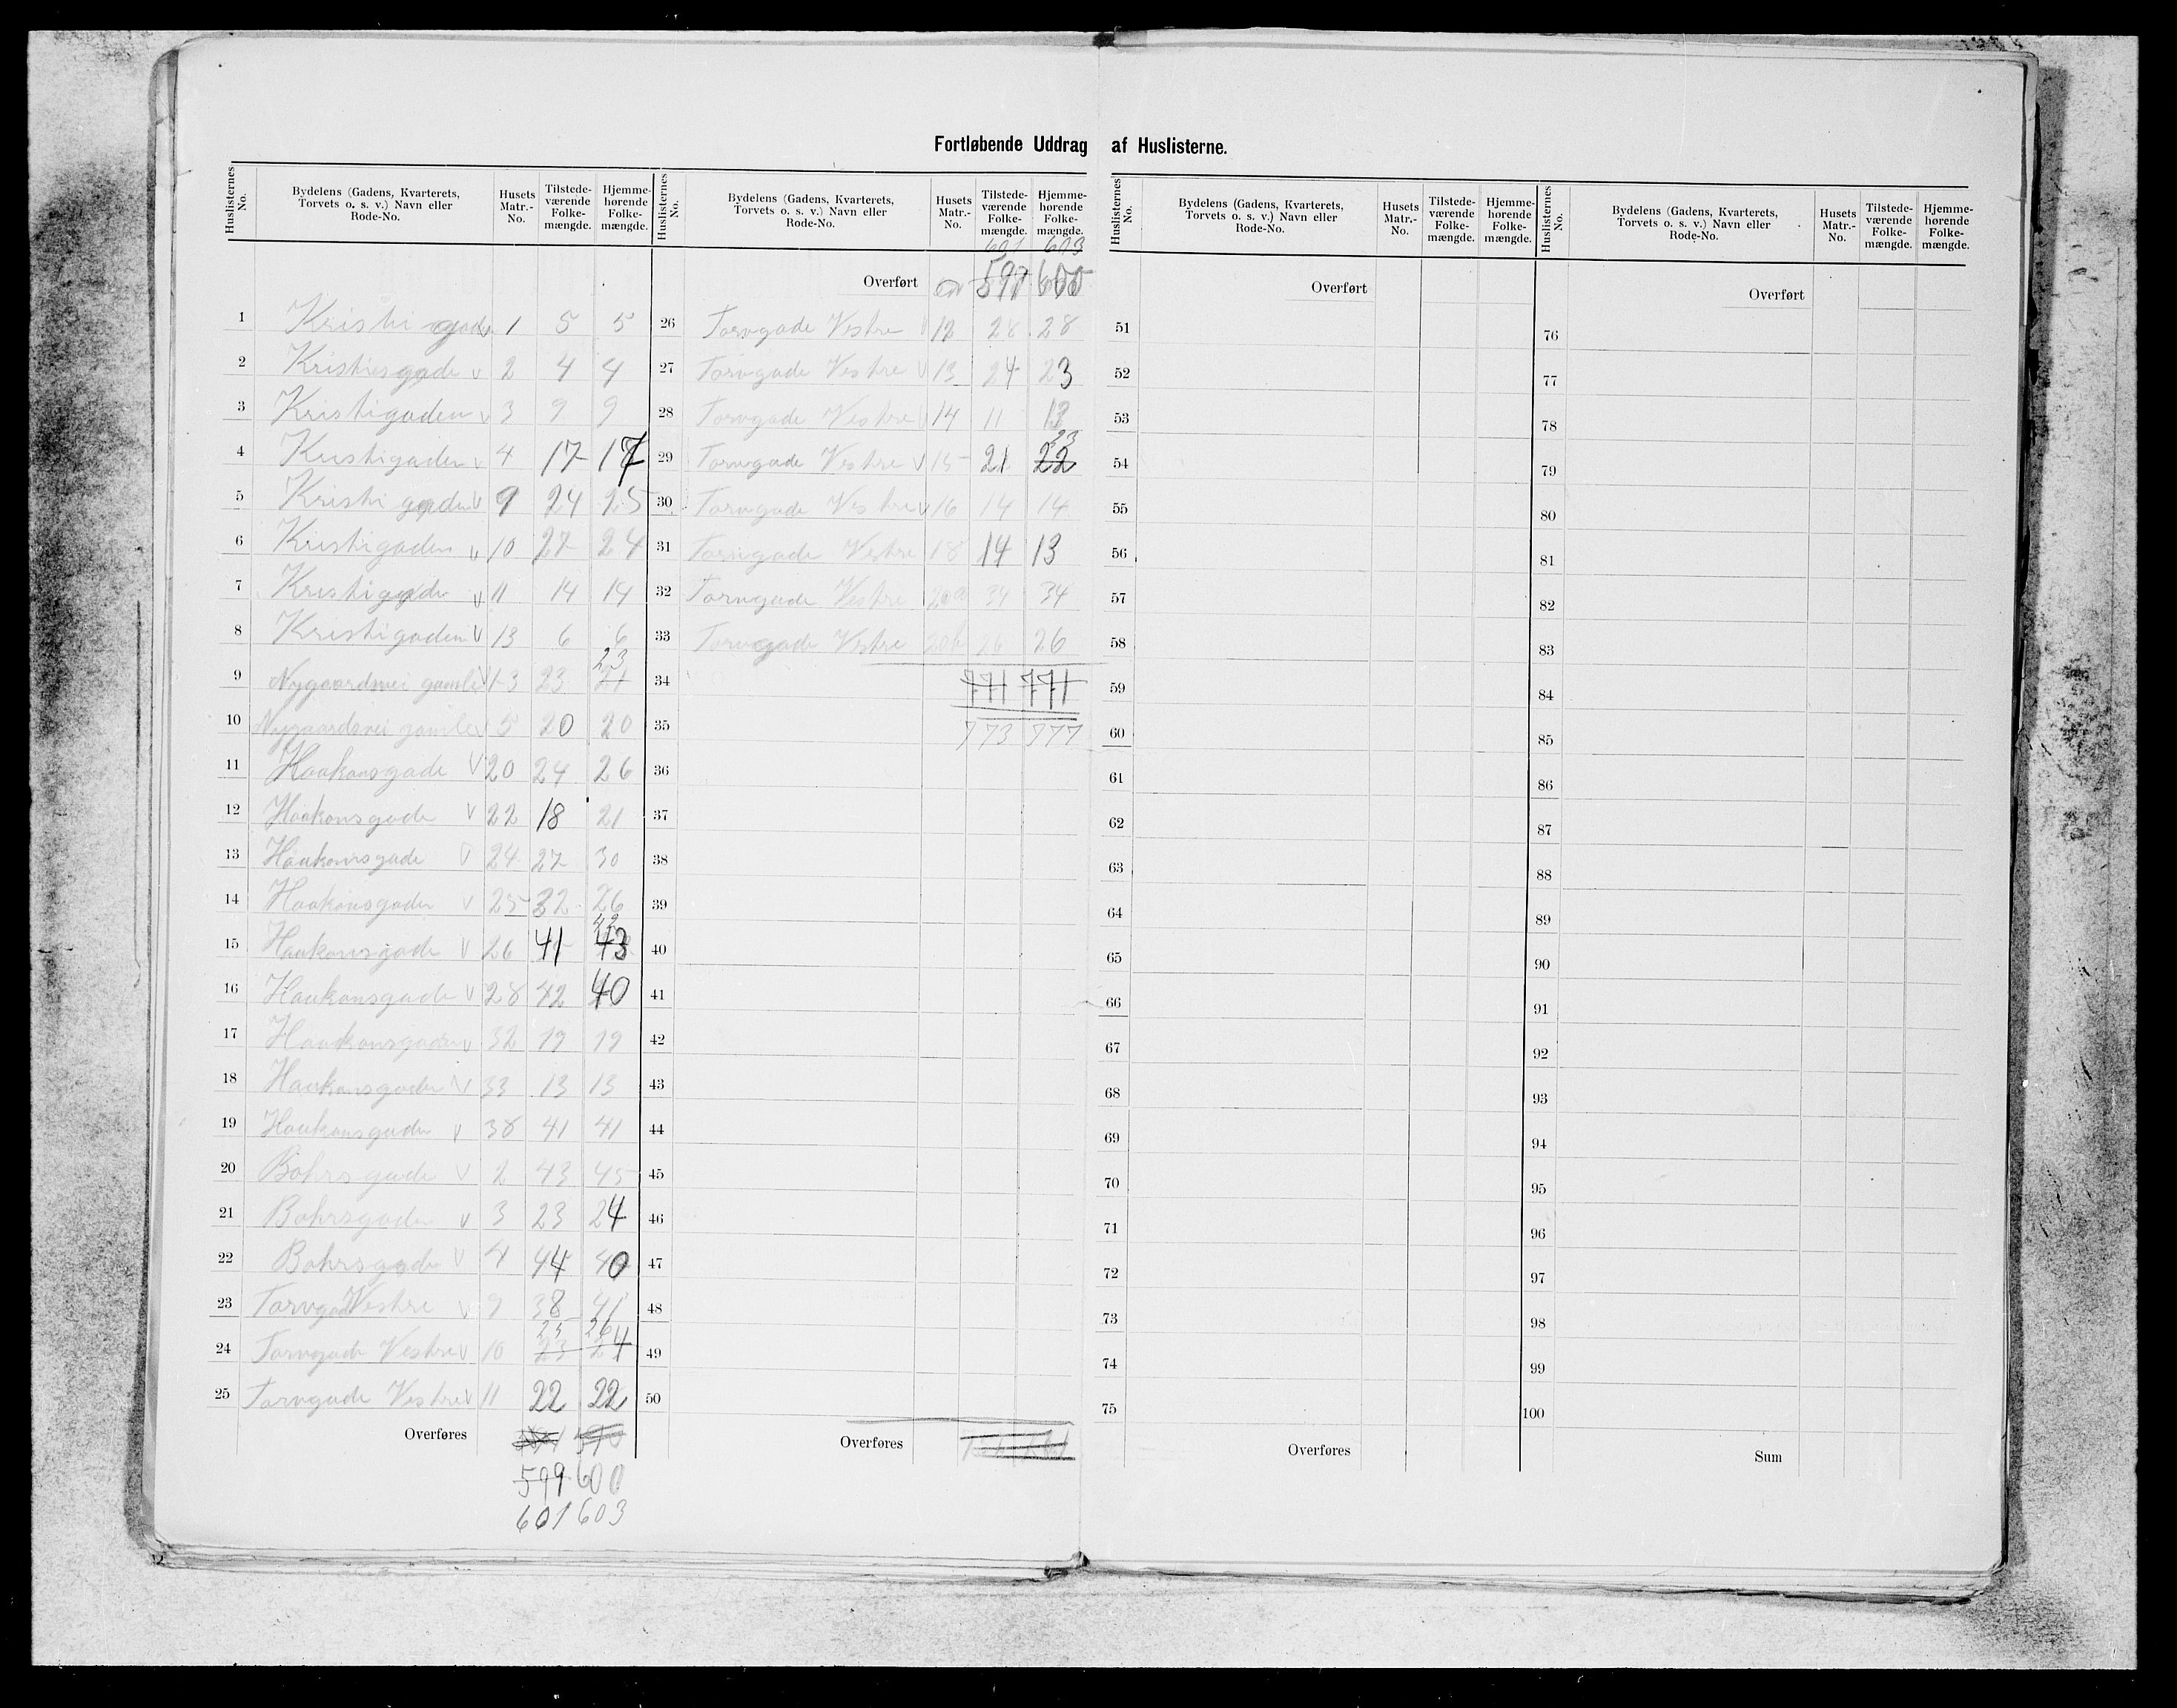 Fortløbende Uddrag af Huslisterne.
Huslisternes No. Bydelens (Gadens, Kvarterets, Torvets o. s. v.) Navn eller Rode-No. Husets Matr.-No. Tilstedeværende Folkemængde. Hjemmehørende Folkemængde.
1 Kristigade 1 5 5
2 Kristiesgade v 2 4 4
3 Kristigaden v 3 9 9
4 Kristigaden v 4 17 17
5 Kristigaden v 9 24 25
6 Kristigaden v 10 24
7 Kristigade v 11 14 14
8 Kristigaden v 13 6 6
23
9 Nygaardsvei gamle v 1-3 23 21
10 Nygaardsvei gamle v 5 20 20
11 Haakonsgade v 20 24 26
12 Haakonsgade v 22 18 21
13 Haakonsgade v 24 27 30
14 Haakonsgaden v 25 32 26
42
15 Haakonsgade v 26 41 43
16 Haakonsgade v 28 42 40
17 Haakonsgaden v 32 19 19
18 Haakonsgaden v 33 13 13
19 Haakonsgaden v 38 41 41
20 Bohrsgade v 2 43 45
21 Bohrsgaden v 3 23 24
22 Bohrsgade v 4 44 40
23 Torvgade Vestre v 9 38 41
25 26
24 Torvgade Vestre v 10 23 24
25 Torvgade Vestre v 11 22 22
Overføres
599 600
601 603
Huslisternes No. Bydelens (Gadens, Kvarterets, Torvets o. s. v.) Navn eller Rode-No. Husets Matr.-No. Tilstedeværende Folkemængde. Hjemmehørende Folkemængde.
601 603
Overført 599 600
26 Torvgade Vestre v 12 28 28
27 Torvgade Vestre v 13 24 23
28 Torvgade Vestre v 14 11 13
23
29 Torvgade Vestre v 15 21 22
30 Torvgade Vestre v 16 14 14
31 Torvgade Vestre 18 14 13
32 Torvgade Vestre 20a 34 34
33 Torvgade Vestre 20b 26 26
34 771 771
35 773 777
36
37
38
39
40
41
42
43
44
45
46
47
48
49
50
Overføres
Huslisternes No. Bydelens (Gadens, Kvarterets, Torvets o. s. v.) Navn eller Rode-No. Husets Matr.-No. Tilstedeværende Folkemængde. Hjemmehørende Folkemængde.
Overført
51
52
53
54
55
56
57
58
59
60
61
62
63
64
65
66
67
68
69
70
71
72
73
74
75
Overføres
Huslisternes No. Bydelens (Gadens, Kvarterets, Torvets o. s. v.) Navn eller Rode-No. Husets Matr.-No. Tilstedeværende Folkemængde. Hjemmehørende Folkemængde.
Overført
76
77
78
79
80
81
82
83
84
85
86
87
88
89
90
91
92
93
94
95
96
97
98
99
100
Sum